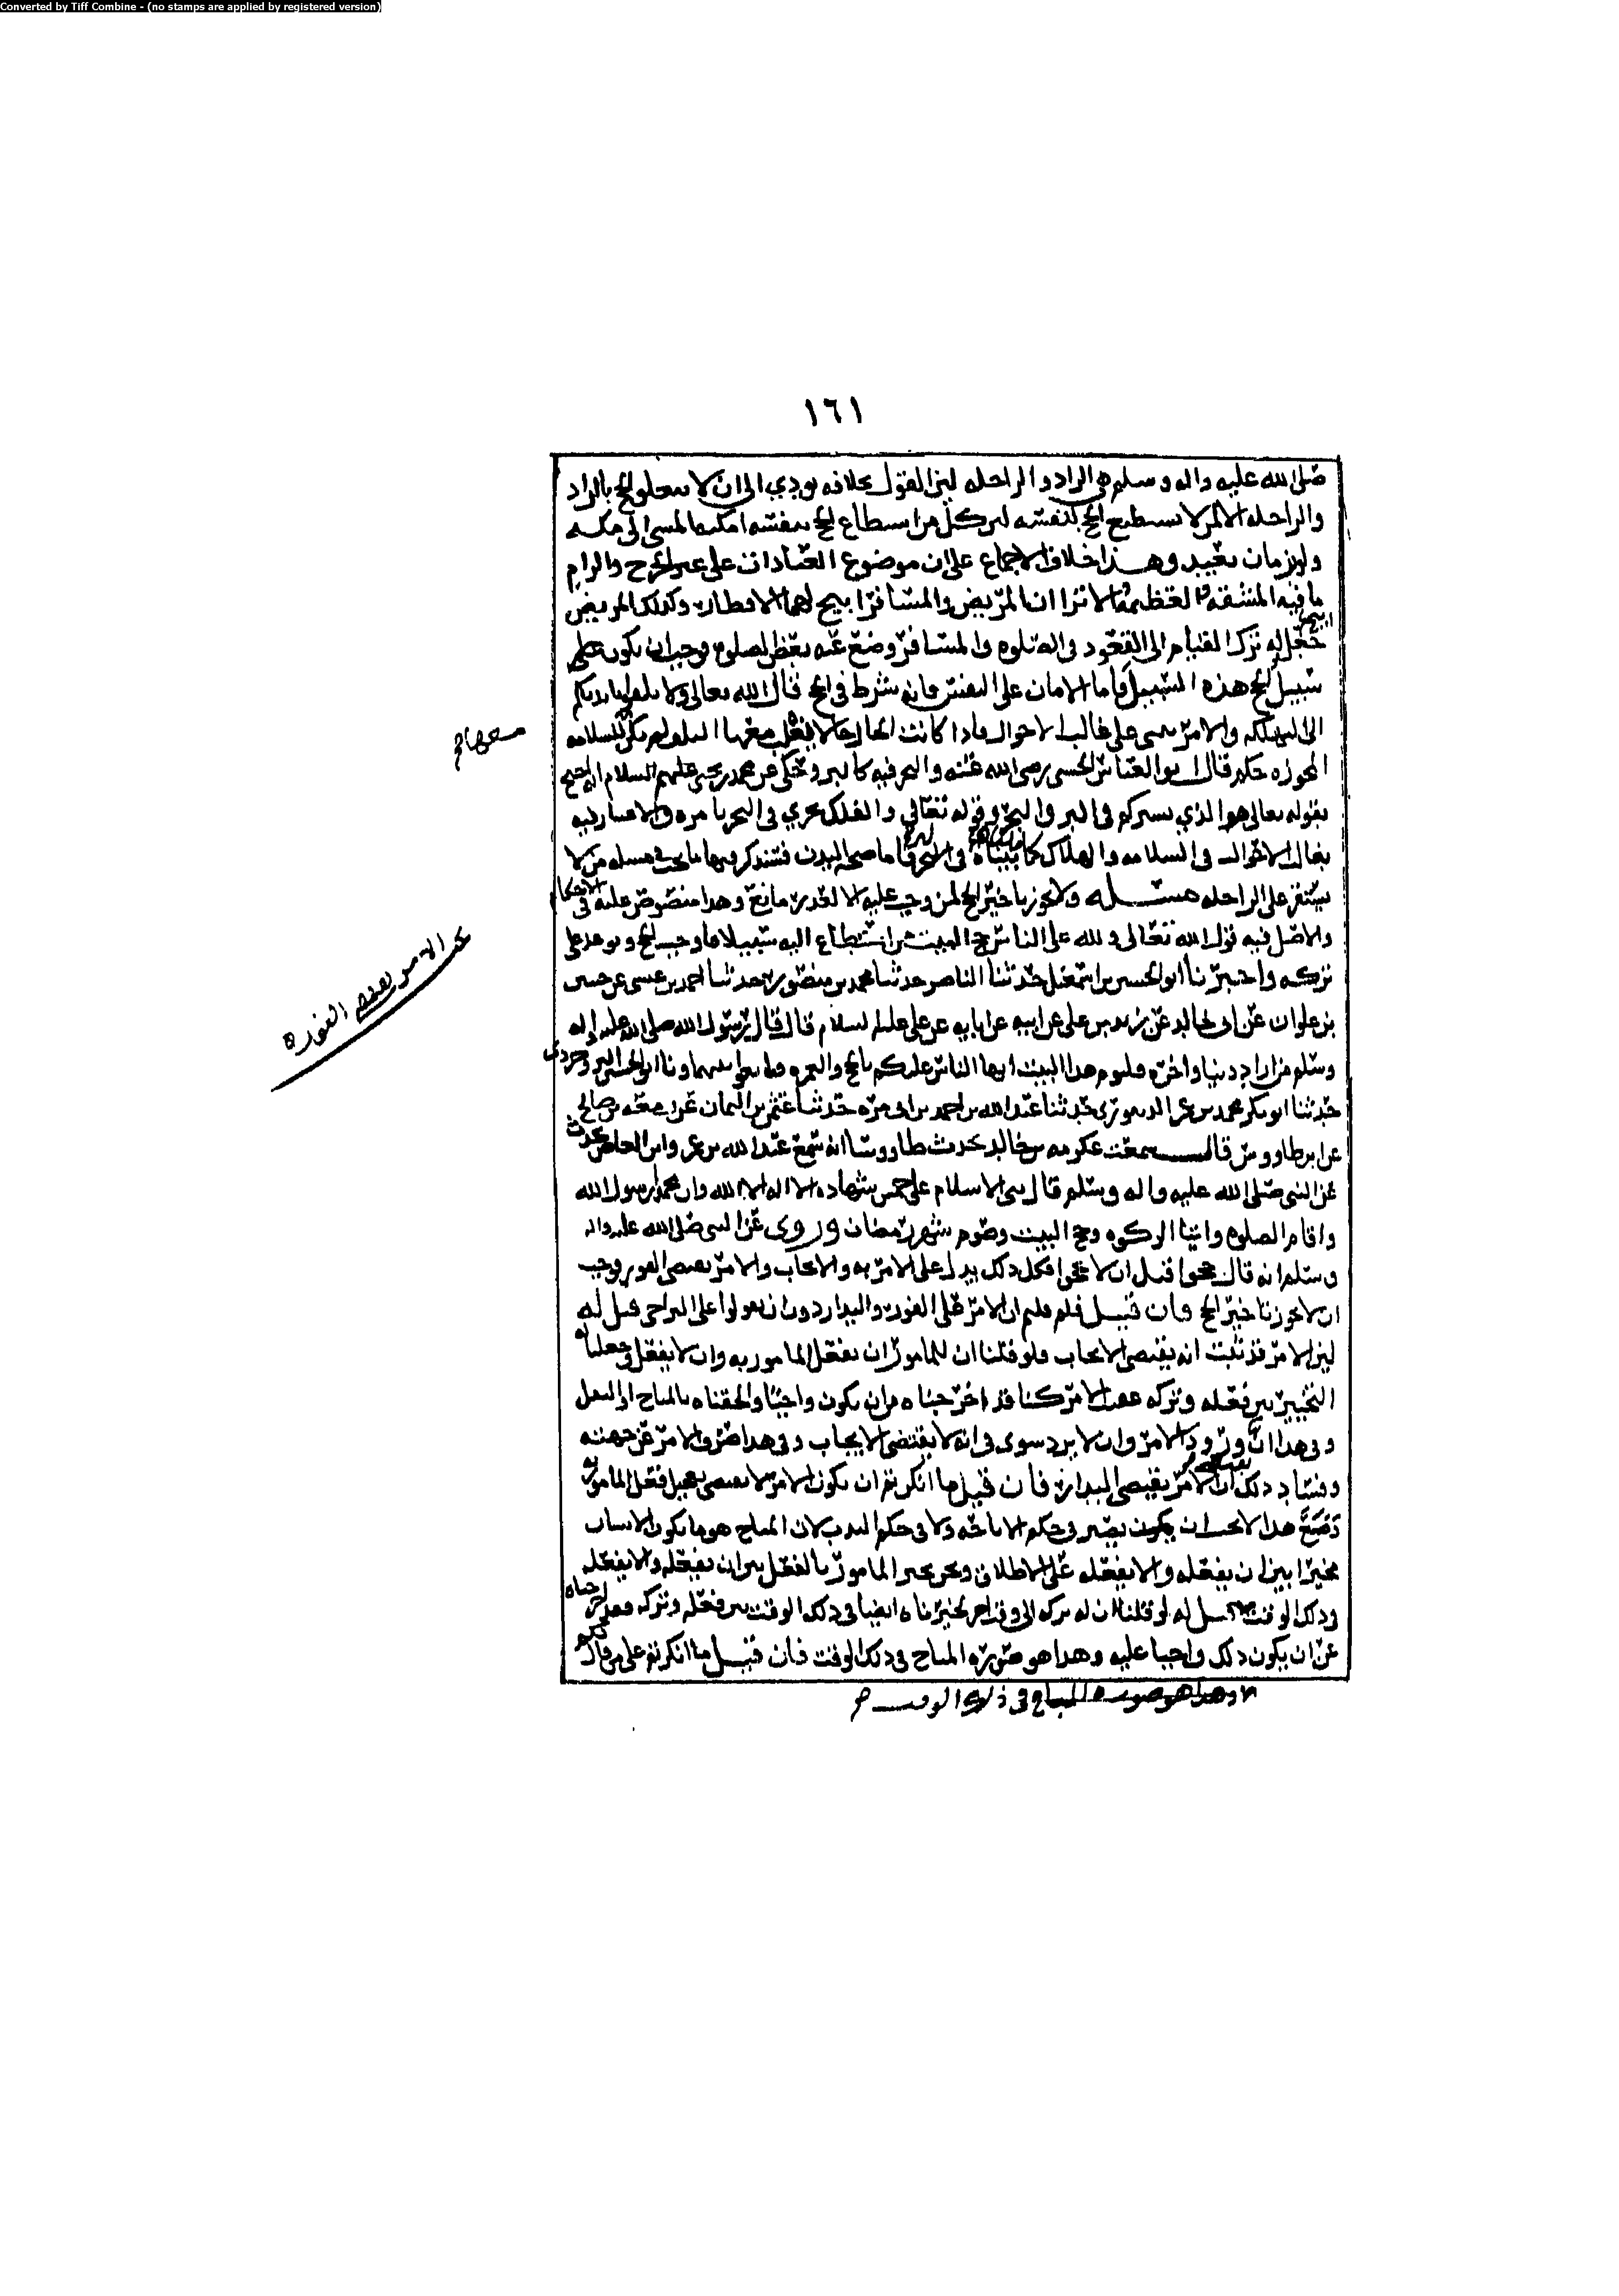 Converted by Tiff Combine - (no stamps are applied by registered version)
١٦١
صلى الله عليه واله وسلم هي الراد والراحله لىن القول بخلافه يودي الى ان لا يتعلق الحج بالراد
والراحله الا لمن لا يستطيع الحج بنفسه لىن كل من استطاع الحج بنفسه امكنه المسى الى مكه
ولو بزمان بعيد وهذا خلاف الاجماع على ان موضوع العبادات على غير الحرج والزام
ما فيه المشقه العظيمه الا ترا ان المريض والمسافر ابيح لهما الافطار وكذلك المريض
جعل له ترك القيام الى القعود في الصلوه والمسافر وضع عنه بعض الصلوه فوجب ان يكون على
سبيل الحج هذه السبيل فاما الامان على النفس فانه شرط في الحج قال الله تعالى ولا تلقوا بايديكم
الى التهلكه والامر يبنى على غالب الاحوال فاذا كانت الحال حالا يغلب معها التلف لم يكن للسلامه
المجوزه حكم قال ابو العباس الحسني رضي الله عنه والبحر فيه كالبر وحكى عن محمد بن يحيى عليهم السلام انه احتج
بقوله تعالى هو الذي يسيركم في البر والبحر وقوله تعالى والفلك تجري في البحر بامره والاعتبار فيه
بغالب الاحوال في السلامه والهلاك كما بيناه في البر فاما صحه البدن فسنذكر فيها ما يجب في مسله من لا
يستقر على الراحله مسئله ولا يجوز تاخير الحج لمن وجب عليه الا لعذر مانع وهذا منصوص عليه في الاحكام
والاصل فيه قول الله تعالى ولله على الناس حج البيت من استطاع اليه سبيلا فاوجب الحج وتوعد على
تركه واخبرنا ابو الحسين بن اسمعيل حدثنا الناصر حدثنا محمد بن منصور حدثنا احمد بن عيسى عن حسين
بن علوان عن ابي خالد عن زيد بن علي عن ابيه عن ابايه عن علي عليه السلام قال قال رسول الله صلى الله عليه واله
وسلم من اراد دنيا واخره فليوم هذا البيت ايها الناس عليكم بالحج والعمره فتابعوا بينهما ونا ابو الحسين البروجردي
حدثنا ابو بكر محمد بن عمر الدينوري حدثنا عبد الله بن احمد بن ابي مره حدثنا عثمن بن اليمان عن زمعه بن صالح
عن ابن طاووس قال سمعت عكرمه بن خالد يحدث طاووسا انه سمع عبد الله بن عمرو ابن العاص يحدث
عن النبي صلى الله عليه واله وسلم قال بني الاسلام على خمس شهاده الا اله الا الله وان محمدا رسول الله
واقام الصلوه وايتا الزكوه وحج البيت وصوم شهر رمضان وروي عن النبي صلى الله عليه واله
وسلم انه قال حجوا قبل ان لا تحجوا فكل ذلك يدل على الامر به والايجاب والامر يقتضي الفور فوجب
ان لا يجوز تاخير الحج فان قيل فلم قلتم ان الامر على الفور والبدار دون ان تقولوا على التراخي قيل له
لىن الامر قد ثبت انه يقتضي الايجاب فلو قلنا ان للمامور ان يفعل المامور به وان لا يفعل وجعلنا له
التخيير بين فعله وتركه عقيب الامر كنا قد اخرجناه من ان يكون واجبا والحقناه بالمباح او النفل
وفي هذا ان ورود الامر وان لا يرد سوى في انه لا يقتضي الايجاب وفي هذا صرف الامر عن جهته
وفساد ذلك ان الامر يقتضي البدار فان قيل ما انكرتم ان يكون الامر لا يقتضي تعجيل فعل المامور به
مخيرا بين ان يفعله والا يفعله على الاطلاق ونحن نخير المامور بالفعل بين ان يفعله والا يفعله
في ذلك الوقت قيل له لو قلنا ان له تركه الى وقت اخر لخيرناه ايضا في ذلك الوقت بين فعله وتركه فقد اخرجناه
عن ان يكون ذلك واجبا عليه وهذا هو صوره المباح في ذلك الوقت فان قيل ما انكرتم على من قال لكم
وهذا هو صوره المباح في ذلك الوقت
الامر يقتضي الفور